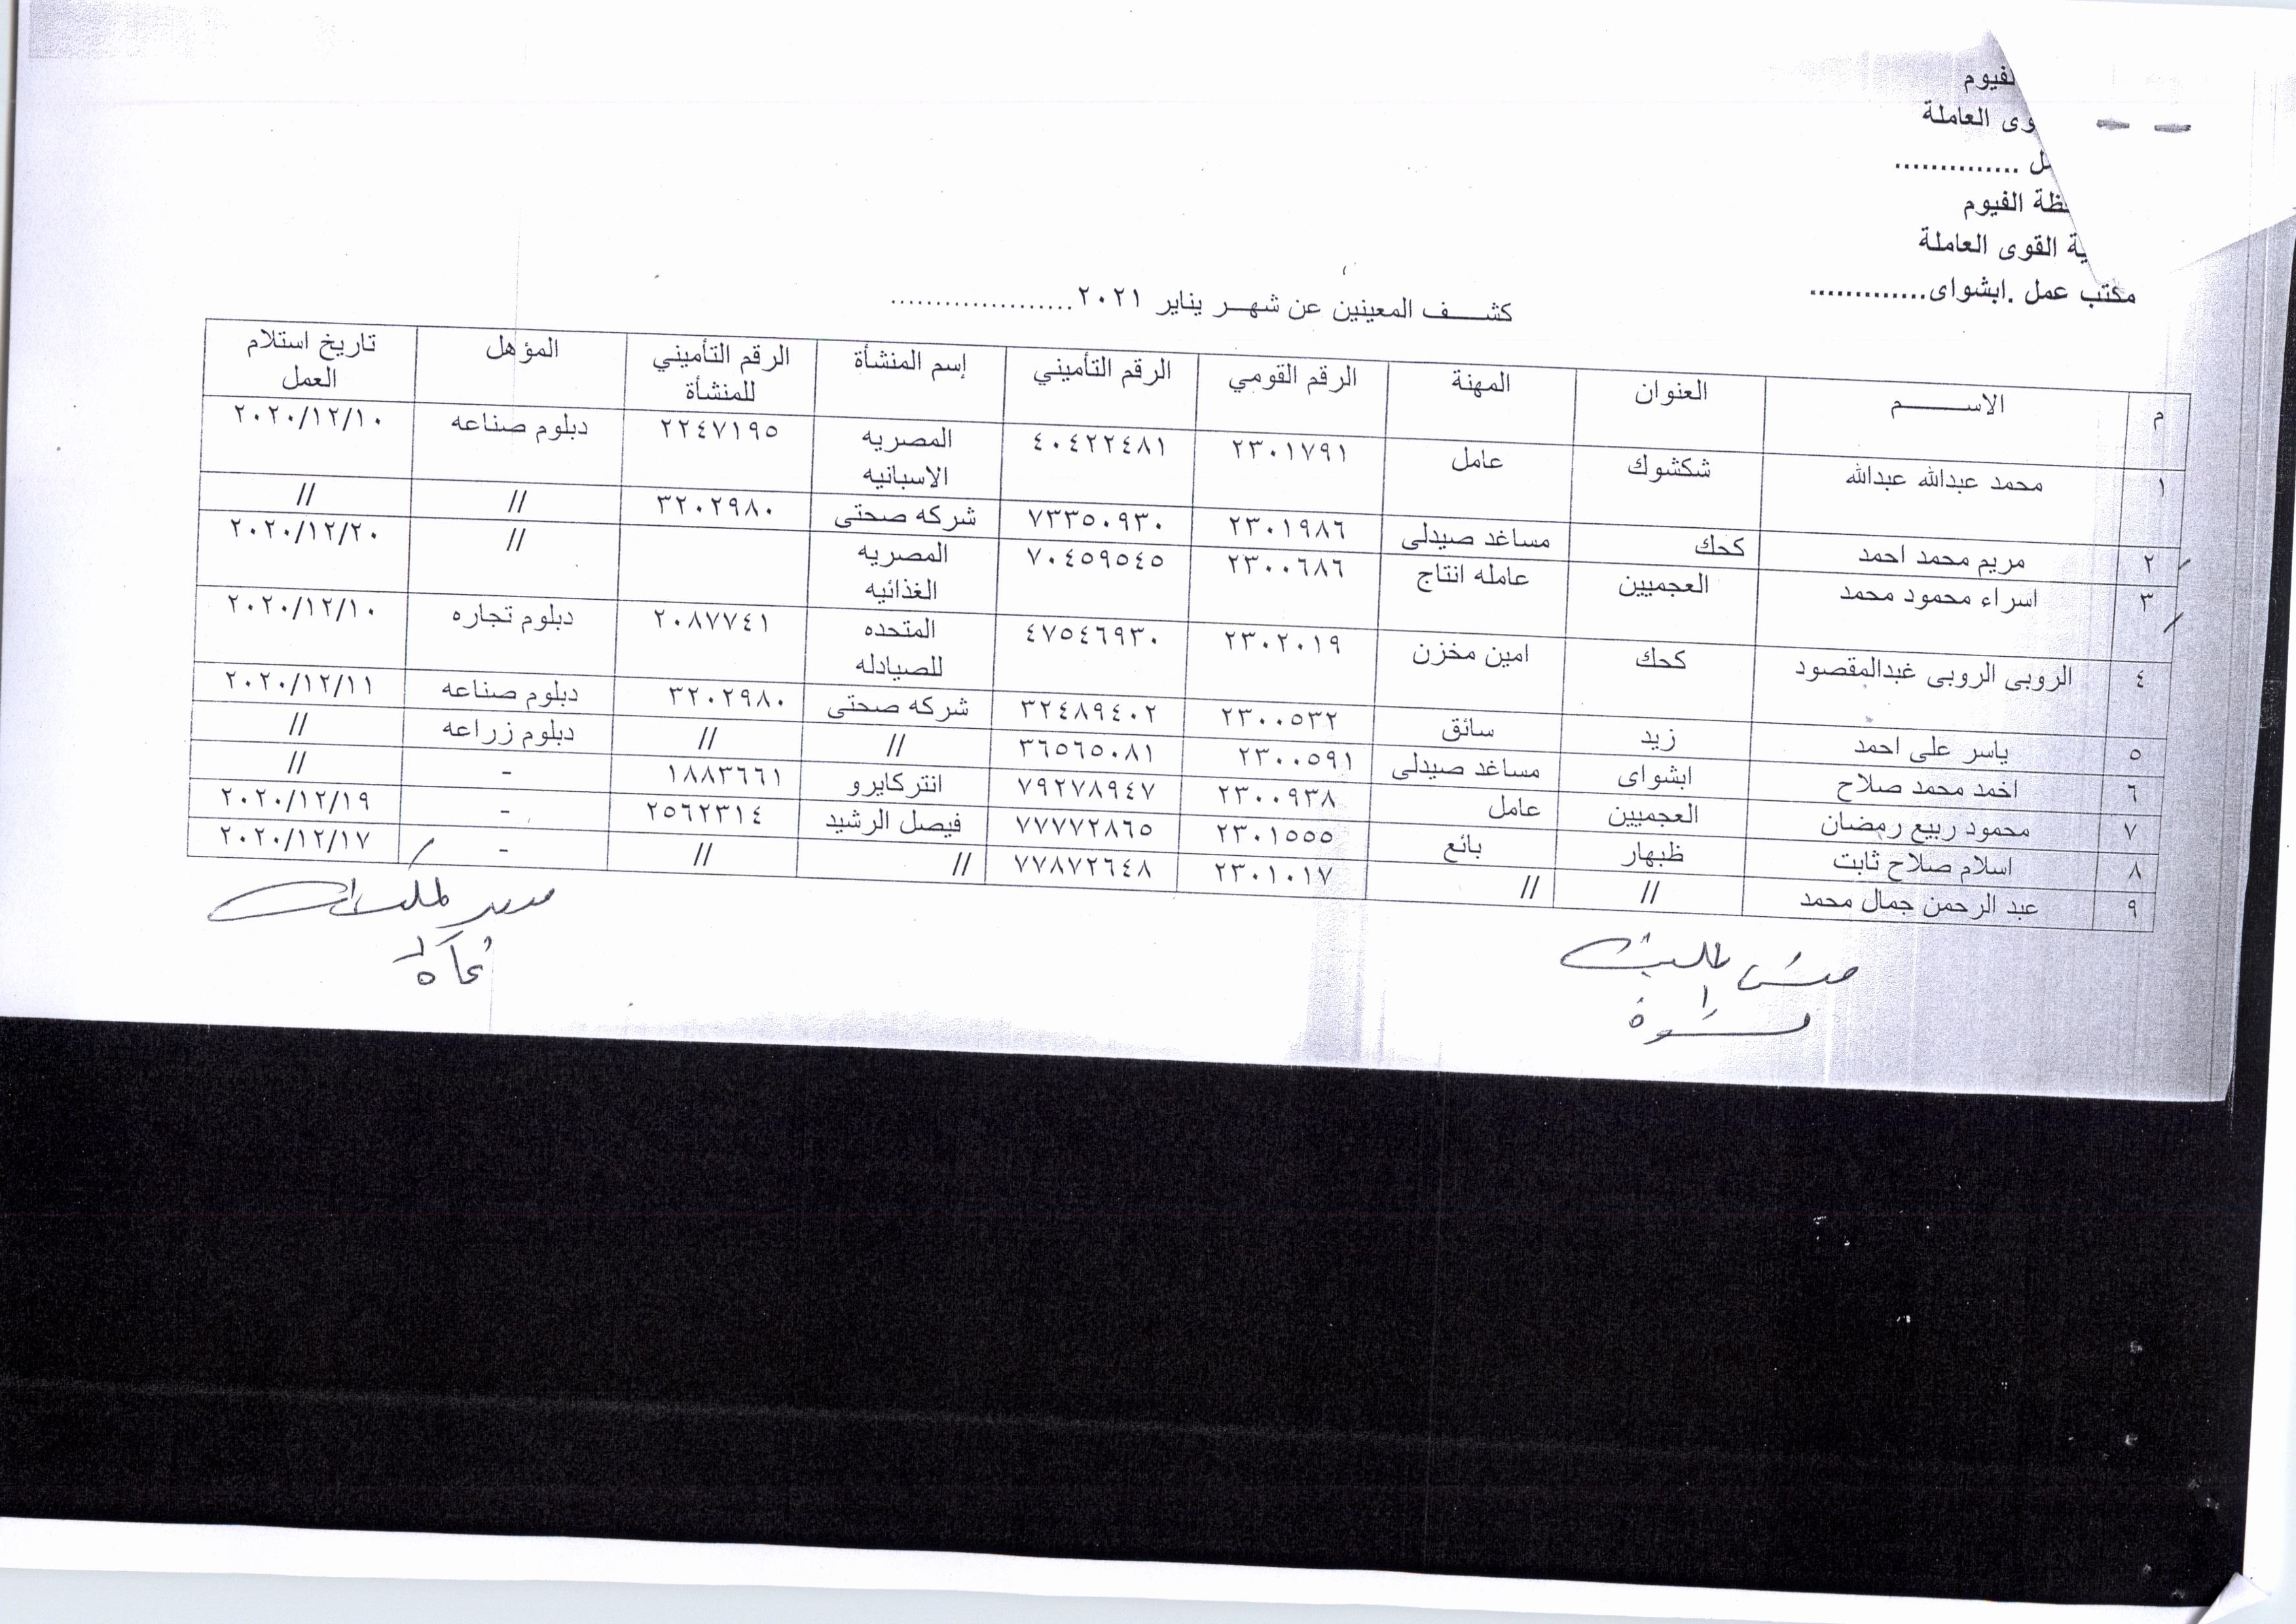 لفيوم
وى العاملة
ل ..............
ظة الفيوم
ية القوى العاملة
مكتب عمل .ابشواى.............
كشـــف المعينين عن شهـــر يناير ٢٠٢١....................
م | الاســــــم | العنوان | المهنة | الرقم القومي | الرقم التأميني | إسم المنشأة | الرقم التأميني للمنشأة | المؤهل | تاريخ استلام العمل
١ | محمد عبدالله عبدالله | شكشوك | عامل | ٢٣٠١٧٩١ | ٤٠٤٢٢٤٨١ | المصريه الاسبانيه | ٢٢٤٧١٩٥ | دبلوم صناعه | ٢٠٢٠/١٢/١٠
٢ | مريم محمد احمد | كحك | مساغد صيدلى | ٢٣٠١٩٨٦ | ٧٣٣٥٠٩٣٠ | شركه صحتى | ٣٢٠٢٩٨٠ | // | //
٣ | اسراء محمود محمد | العجميين | عامله انتاج | ٢٣٠٠٦٨٦ | ٧٠٤٥٩٥٤٥ | المصريه الغذائيه | | // | ٢٠٢٠/١٢/٢٠
٤ | الروبى الروبى غبدالمقصود | كحك | امين مخزن | ٢٣٠٢٠١٩ | ٤٧٥٤٦٩٣٠ | المتحده للصيادله | ٢٠٨٧٧٤١ | دبلوم تجاره | ٢٠٢٠/١٢/١٠
٥ | ياسر على احمد | زيد | سائق | ٢٣٠٠٥٣٢ | ٣٢٤٨٩٤٠٢ | شركه صحتى | ٣٢٠٢٩٨٠ | دبلوم صناعه | ٢٠٢٠/١٢/١١
٦ | اخمد محمد صلاح | ابشواى | مساغد صيدلى | ٢٣٠٠٥٩١ | ٣٦٥٦٥٠٨١ | // | // | دبلوم زراعه | //
٧ | محمود ربيع رمضان | العجميين | عامل | ٢٣٠٠٩٣٨ | ٧٩٢٧٨٩٤٧ | انتركايرو | ١٨٨٣٦٦١ | - | //
٨ | اسلام صلاح ثابت | ظبهار | بائع | ٢٣٠١٥٥٥ | ٧٧٧٧٢٨٦٥ | فيصل الرشيد | ٢٥٦٢٣١٤ | - | ٢٠٢٠/١٢/١٩
٩ | عبد الرحمن جمال محمد | // | // | ٢٣٠١٠١٧ | ٧٧٨٧٢٦٤٨ | // | // | - | ٢٠٢٠/١٢/١٧